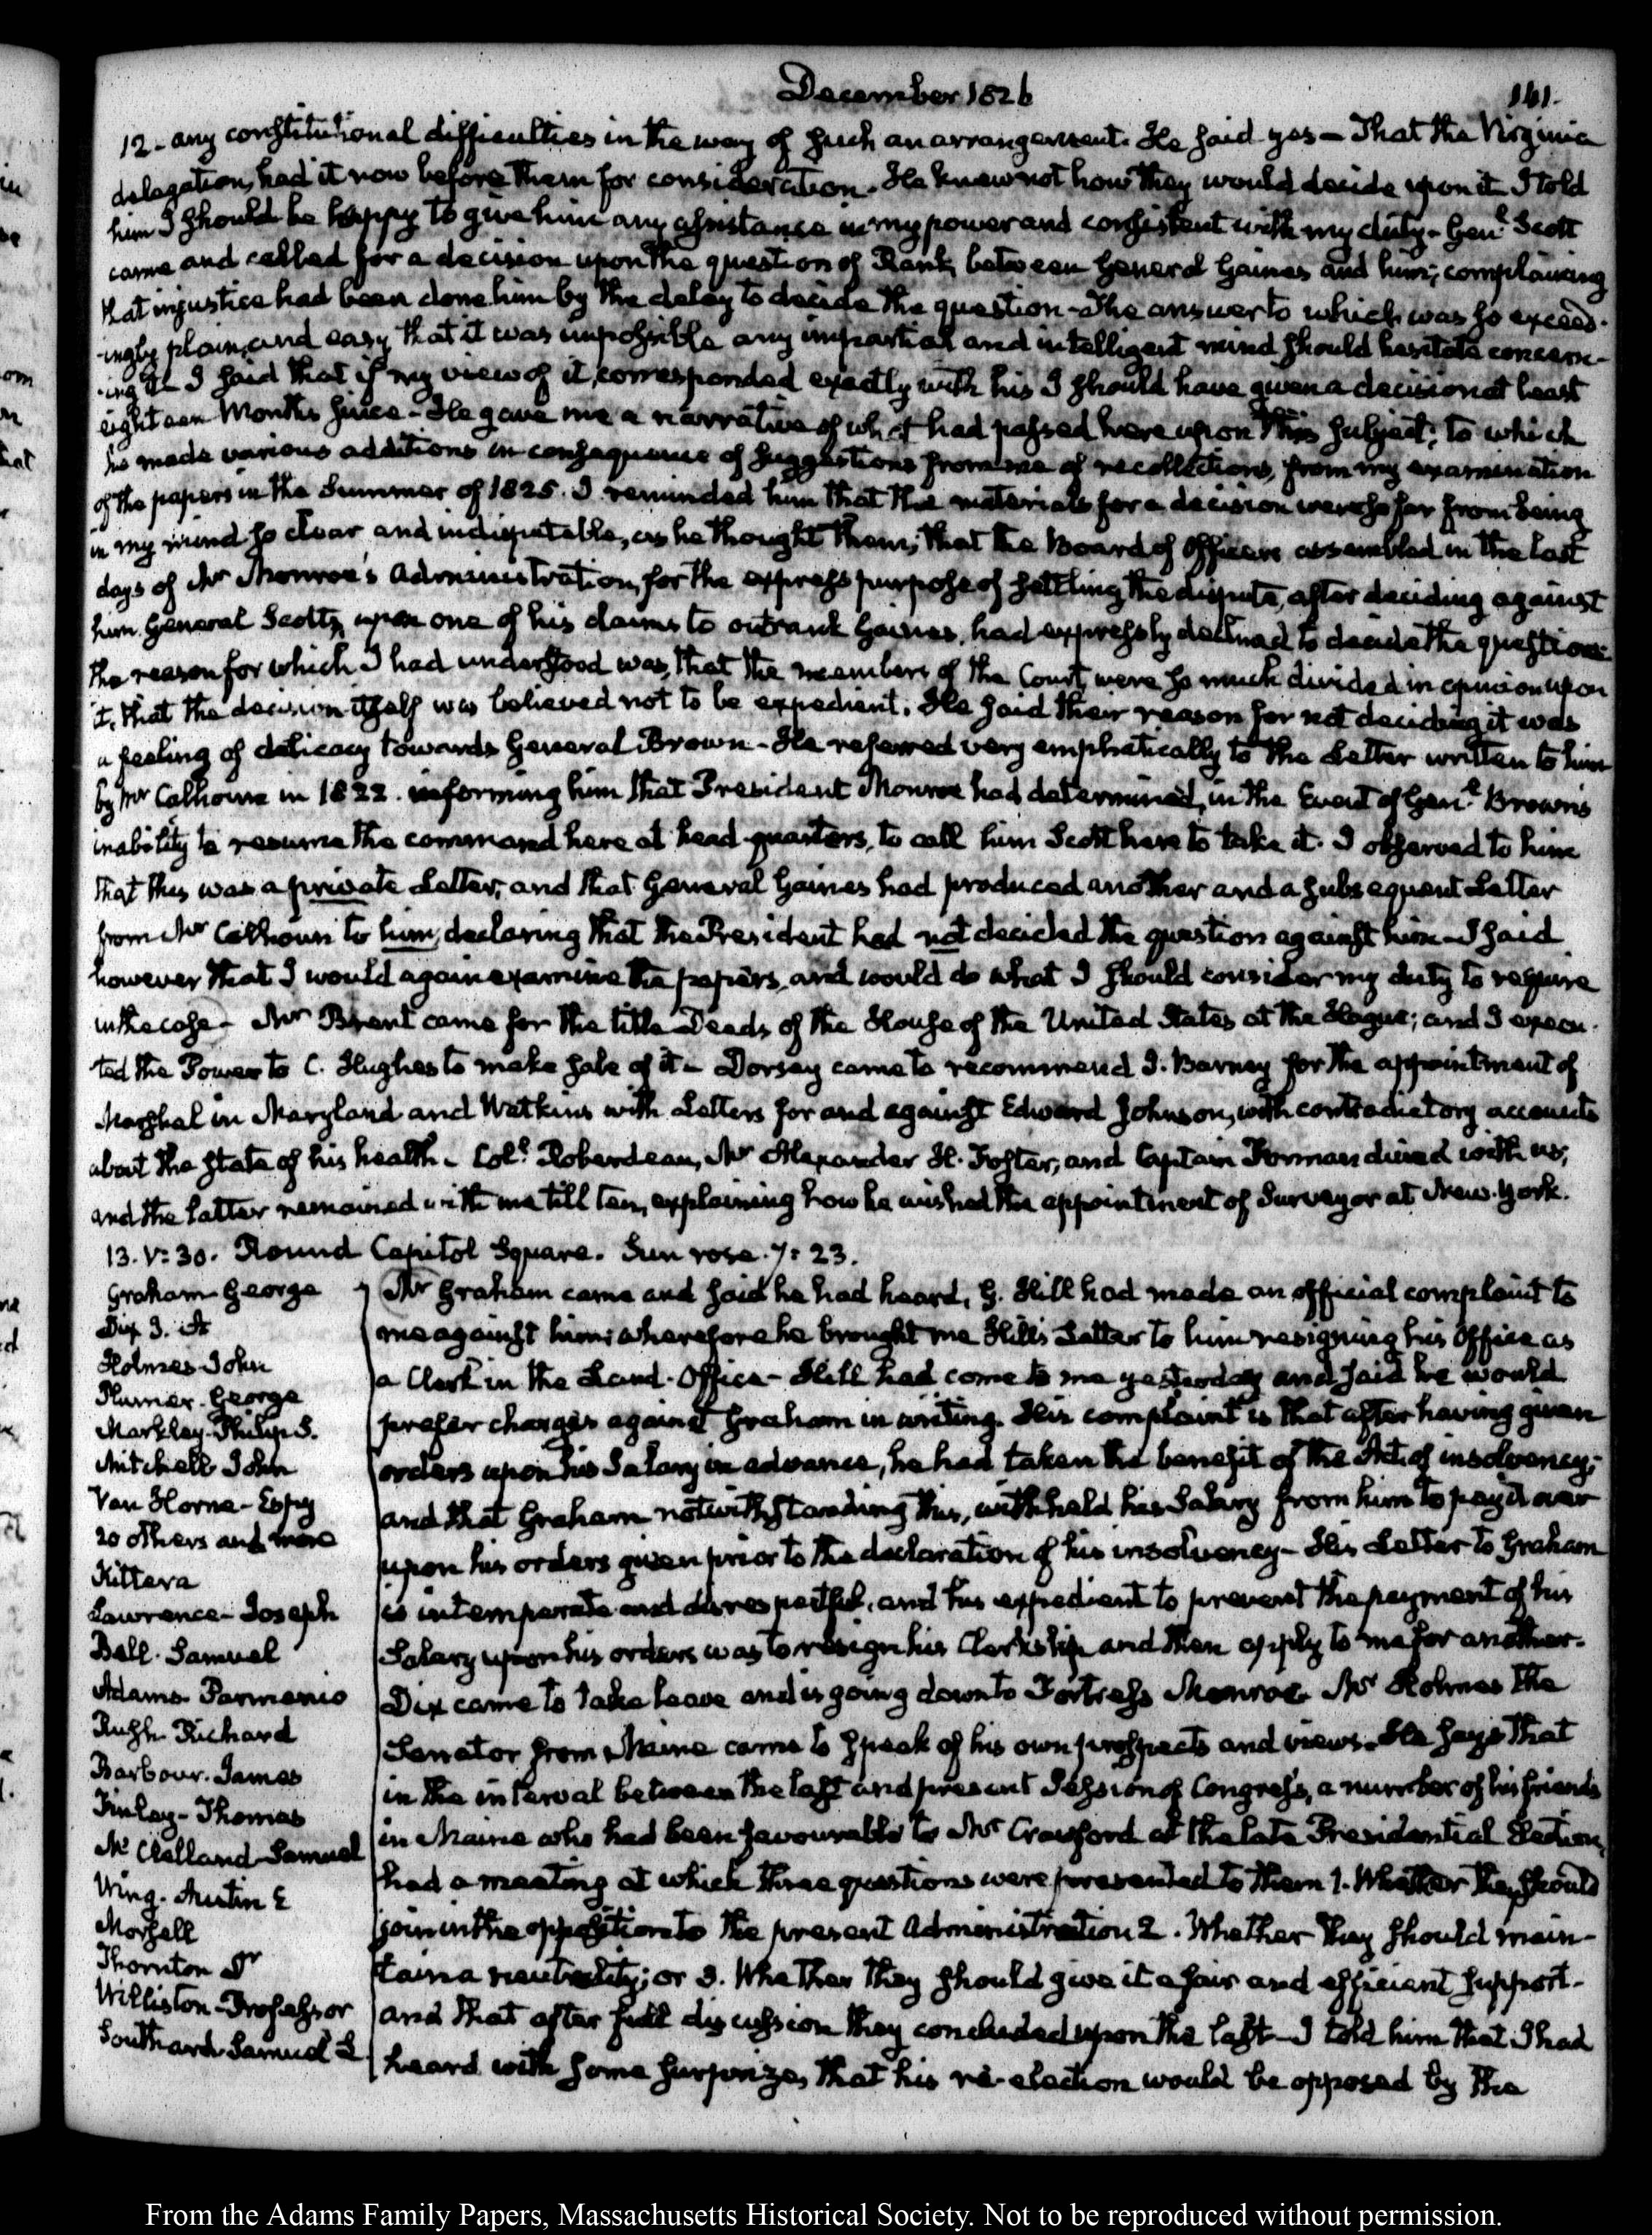 December 1826
161.
12 - any constitutional difficulties in the way of such an arrangement. He said yes — That the Virginia
delegation, had it now before them for consideration. He knew not how they would decide upon it. I told
him I should be happy to give him any assistance in my power and consistent with my duty. Genl. Scott
came and called for a decision upon the question of Rank, between General Gaines and him; complaining
that injustice had been done him by the delay to decide the question - The answer to which was so exceed-
-ingly plain, and easy that it was impossible any impartial and intelligent mind should hesitate concern-
-ing it - I said that if my view of it, corresponded exactly with his I should have given a decision at least
eighteen Months since - He gave me a narrative of what had passed here upon this subject; to which
he made various additions in consequence of suggestions from me of recollections, from my examination
of the papers in the Summer of 1825. I reminded him that the materials for a decision were so far from being
in my mind so clear and indisputable, as he thought them; that the Board of Officers assembled in the last
days of Mr Monroe's Administration, for the express purpose of settling the dispute, after deciding against
him General Scott, upon one of his claims to outrank Gaines, had expressly declined to decide the question:
the reason for which I had understood was, that the members of the Court were so much divided in opinion upon
it, that the decision itself was believed not to be expedient. He said their reason for not deciding it was
a feeling of delicacy towards General Brown - He referred very emphatically to the Letter written to him
by Mr Calhoun in 1822. informing him that President Monroe had determined, in the Event of Genl. Brown's
inability to resume the command here at head-quarters, to call him Scott here to take it. I observed to him
that this was a private Letter; and that General Gaines had produced another and a subsequent Letter
from Mr Calhoun to him, declaring that the President had not decided the question against him - I said
however that I would again examine the papers, and would do what I should consider my duty to require
in the case - Mr Brent came for the title Deeds of the House of the United States at the Hague; and I execu-
ted the Power to C. Hughes to make sale of it - Dorsey came to recommend J. Barney for the appointment of
Marshal in Maryland and Watkins with Letters for and against Edward Johnson, with contradictory accounts
about the state of his health - Coll. Roberdeau, Mr Alexander H. Foster, and Captain Forman dined with us;
and the latter remained with me till ten, explaining how he wished the appointment of Surveyor at New-York.
13. V:30. Round Capitol Square. Sun rose 7:23.
Graham George
Dix J. A
Holmes John
Plumer George
Markley Philip S.
Mitchell John
Van Horne - Espy
20 others and more
Kittera
Lawrence - Joseph
Ball Samuel
Adams Parmenio
Rush Richard
Barbour James
Finlay - Thomas
Mc Clelland Samuel
Wing Austin E
Morsell
Thornton Dr
Williston - Professor
Southard Samuel L
Mr Graham came and said he had heard, G. Hill had made an official complaint to
me against him: wherefore he brought me Hill's Letter to him resigning his Office as
a Clerk in the Land-Office - Hill had come to me yesterday and said he would
prefer charges against Graham in writing. His complaint is that after having given
orders upon his Salary in advance, he had taken the benefit of the Act of insolvency;
and that Graham notwithstanding this, withheld his Salary from him to pay it over
upon his orders given prior to the declaration of his insolvency - His Letter to Graham
is intemperate and disrespectful, and his expedient to prevent the payment of his
Salary upon his orders was to resign his Clerkship and then apply to me for another.
Dix came to take leave and is going down to Fortress Monroe. Mr Holmes the
Senator from Maine came to speak of his own prospects and views. He says that
in the interval between the last and present Session of Congress, a number of his friends
in Maine who had been favourable to Mr Crawford at the late Presidential Election,
had a meeting at which three questions were presented to them 1. Whether they should
join in the opposition to the present Administration 2. Whether they should main-
tain a neutrality; or 3. Whether they should give it a fair and efficient support -
and that after full discussion they concluded upon the last - I told him that I had
heard with some surprize, that his re-election would be opposed by the
From the Adams Family Papers, Massachusetts Historical Society. Not to be reproduced without permission.